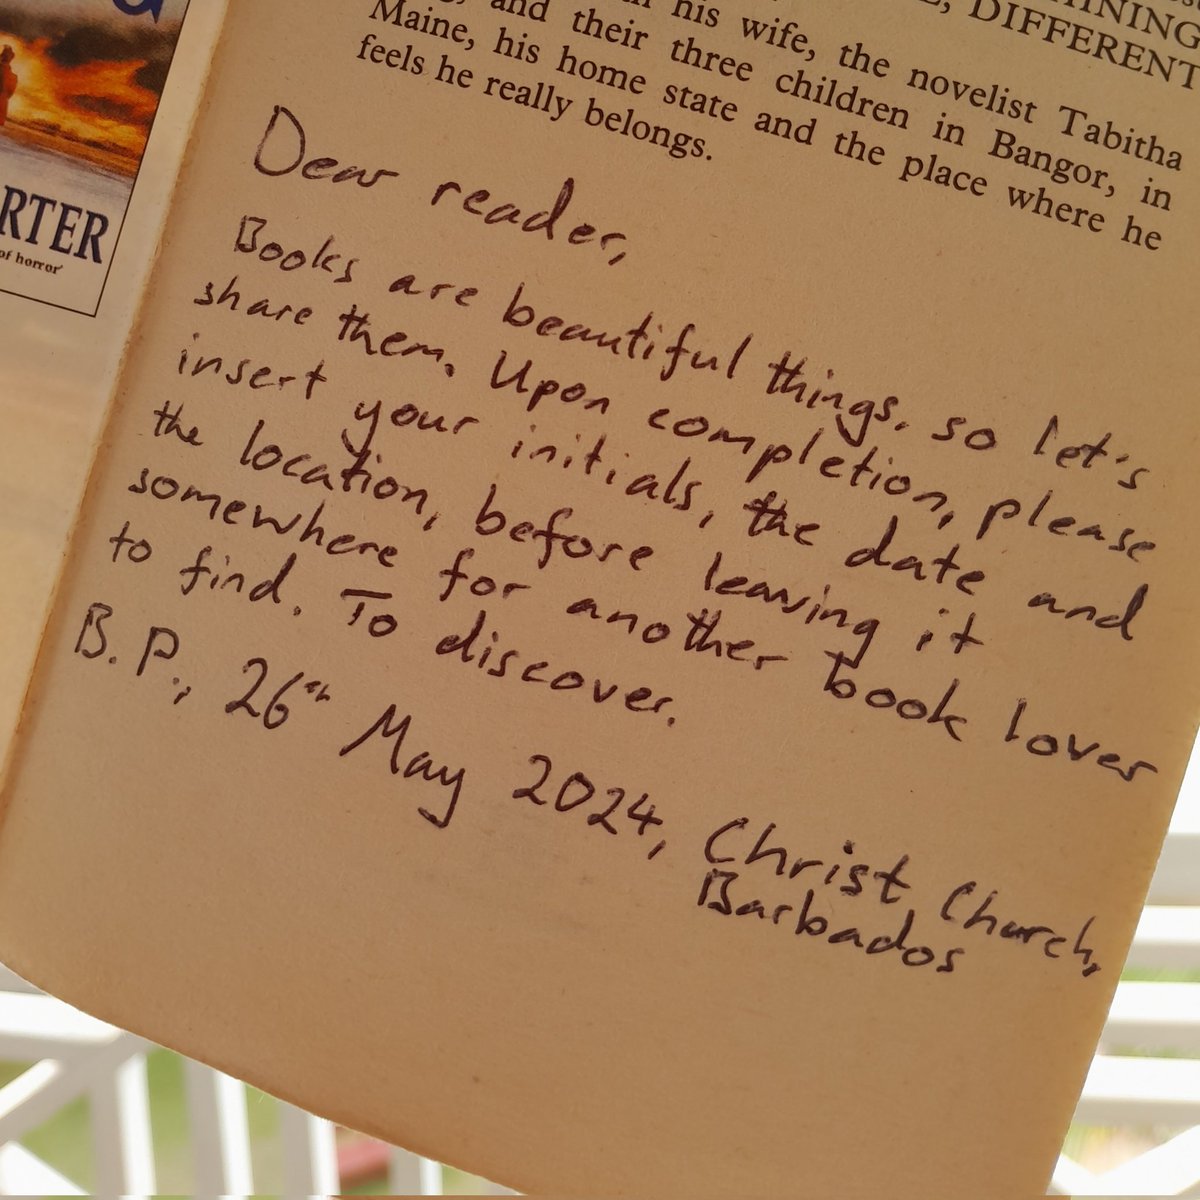 HINING
DIFFERENT
his wife, the novelist Tabitha
and their three children in Bangor, in
Maine, his home state and the place where he
feels he really belongs.
RTER
of horror'
Dear reader,
Books are beautiful things. so let's
share them. Upon completion, please
insert your initials, the date and
the location, before leaving it
somewhere for another book lover
to find. To discover.
B.P., 26th May 2024, Christ Church,
Barbados